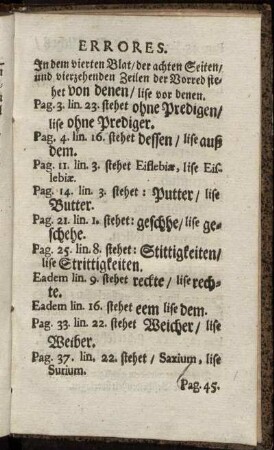 ERRORES.
In dem vierten Blat/ der achten Seiten/
und vierzehenden Zeilen der Vorred ste-
het von denen/ lise vor denen.
Pag. 3. lin. 23. stehet ohne Predigen/
lise ohne Prediger.
Pag. 4. lin. 16. stehet dessen/ lise auß
dem.
Pag. 11. lin. 3. stehet Eiflebiæ, lise Eis-
lebiæ.
Pag. 14. lin. 3. stehet: Putter/ lise
Butter.
Pag. 21. lin. 1. stehet: geschhe/ lise ge-
schehe.
Pag. 25. lin. 8. stehet: Stittigkeiten/
lise Strittigkeiten.
Eadem lin. 9. stehet reckte/ lise rech-
te.
Eadem lin. 16. stehet eem lise dem.
Pag. 33. lin. 22. stehet Weicher/ lise
Weiber.
Pag. 37. lin. 22. stehet/ Saxium, lise
Surium.
Pag. 45.